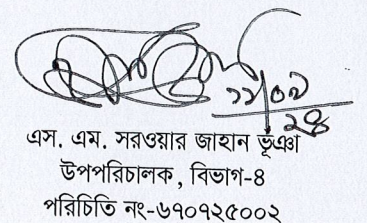 ১১/০৯
২৪
এস. এম. সরওয়ার জাহান ভূঞা
উপপরিচালক, বিভাগ-৪
পরিচিতি নং-৬৭০৭২৫০০২